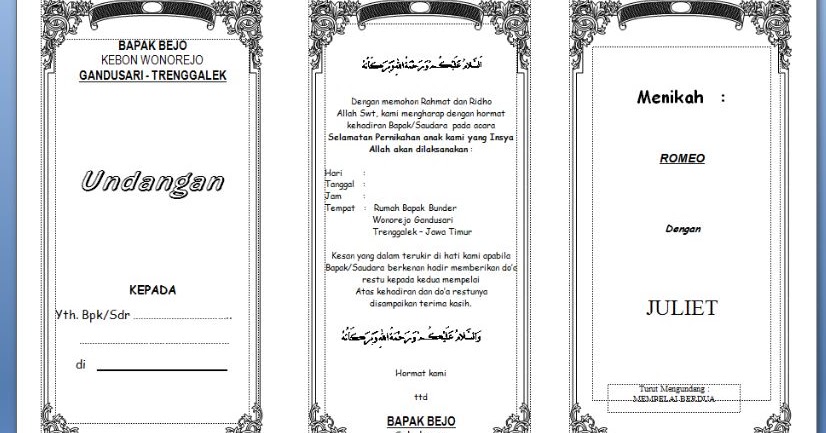 BAPAK BEJO
KEBON WONOREJO
GANDUSARI - TRENGGALEK
Undangan
KEPADA
Yth. Bpk/Sdr ..............................
..............................
di ____________________
السلام عليكم ورحمة الله وبركاته
Dengan memohon Rahmat dan Ridho
Allah Swt, kami mengharap dengan hormat
kehadiran Bapak/Saudara pada acara
Selamatan Pernikahan anak kami yang Insya
Allah akan dilaksanakan :
Hari :
Tanggal :
Jam :
Tempat : Rumah Bapak Bunder
Wonorejo Gandusari
Trenggalek – Jawa Timur
Kesan yang dalam terukir di hati kami apabila
Bapak/Saudara berkenan hadir memberikan do'a
restu kepada kedua mempelai
Atas kehadiran dan do'a restunya
disampaikan terima kasih.
والسلام عليكم ورحمة الله وبركاته
Hormat kami
ttd
BAPAK BEJO
Menikah :
ROMEO
Dengan
JULIET
Turut Mengundang :
MEMPELAI BERDUA